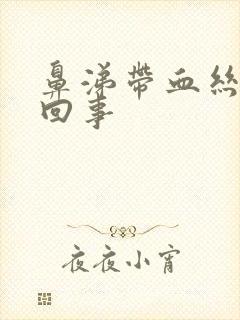 鼻涕帶血絲
回事
夜夜小宵